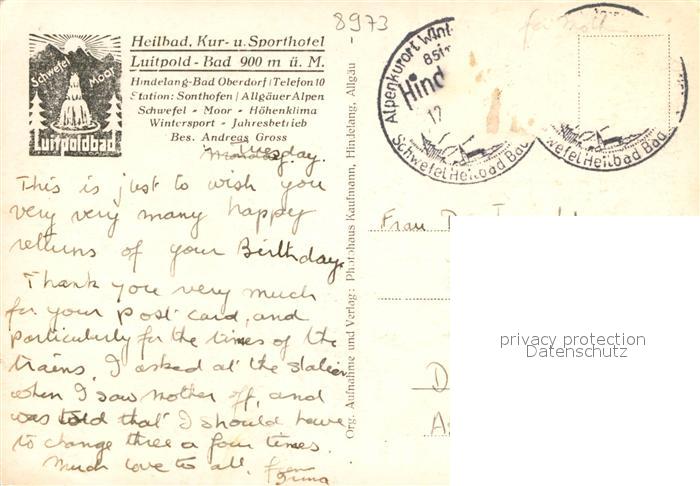 8973
Heilbad, Kur- u. Sporthotel
Luitpold-Bad 900 m ü. M.
Hindelang-Bad Oberdorf | Telefon 10
Station: Sonthofen | Allgäuer Alpen
Schwefel - Moor - Höhenklima
Wintersport - Jahresbetrieb
Bes. Andreas Gross
Schwefel Moor
Luitpoldbad
Tuesday.
This is just to wish you
very very many happy
returns of your Birthday.
Thank you very much
for your post card, and
particularly for the times of the
trains. I asked at the station
when I saw mother off, and
was told that I should have
to change three a four times.
Much love to all. from
Org. Aufnahme und Verlag: Photohaus Kaufmann, Hindelang, Allgäu
Alpenkurort
Hind
12
Schwefel Heilbad Bad
Schwefel Heilbad Bad
Frau
D
A
privacy protection
Datenschutz